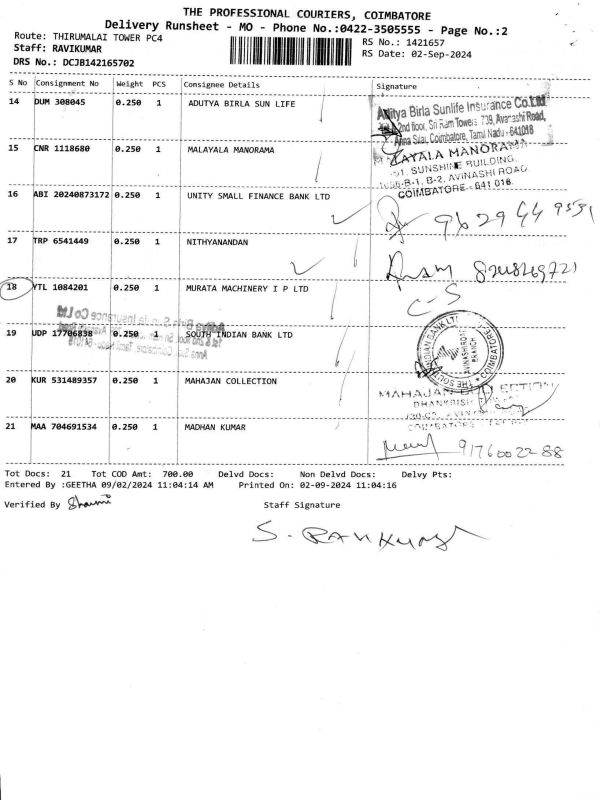 THE PROFESSIONAL COURIERS, COIMBATORE
Delivery Runsheet - MO - Phone No.:0422-3505555 - Page No.:2
Route: THIRUMALAI TOWER PC4
RS No.: 1421657
Staff: RAVIKUMAR
RS Date: 02-Sep-2024
DRS No.: DCJB142165702
S No Consignment No Weight PCS Consignee Details Signature
14 DUM 308045 0.250 1 ADUTYA BIRLA SUN LIFE
Aditya Birla Sunlife Insurance Co.Ltd
2nd floor, Sri Ram Towers 739, Avanashi Road,
Anna Silai, Coimbatore, Tamil Nadu - 641018
15 CNR 1118680 0.250 1 MALAYALA MANORAMA
MALAYALA MANORAMA
SUNSHINE BUILDING,
B-1, B-2, AVINASHI ROAD
COIMBATORE - 641 018.
16 ABI 20240873172 0.250 1 UNITY SMALL FINANCE BANK LTD
17 TRP 6541449 0.250 1 NITHYANANDAN
18 VTL 1084201 0.250 1 MURATA MACHINERY I P LTD
C-S
19 UDP 17706838 0.250 1 SOUTH INDIAN BANK LTD
THE SOUTH INDIAN BANK LTD COIMBATORE
AVINASHI ROAD
BRANCH
20 KUR 531489357 0.250 1 MAHAJAN COLLECTION
MAHAJAN COLLECTION
21 MAA 704691534 0.250 1 MADHAN KUMAR
9176002288
Tot Docs: 21 Tot COD Amt: 700.00 Delvd Docs: Non Delvd Docs: Delvy Pts:
Entered By :GEETHA 09/02/2024 11:04:14 AM Printed On: 02-09-2024 11:04:16
Verified By
Staff Signature
S. RAVIKUMAR